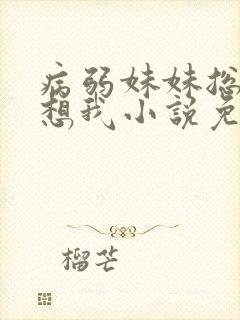 病弱妹妹总
想我小说免
榴芒